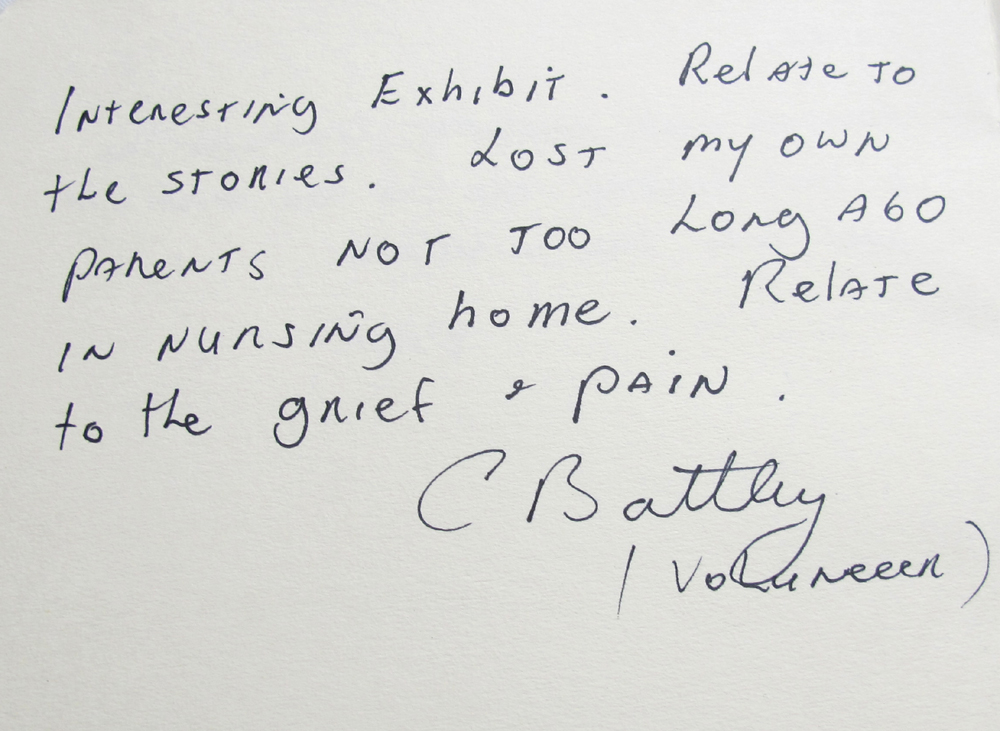 Interesting Exhibit. Relate to
the stories. Lost my own
parents not too long ago
in nursing home. Relate
to the grief & pain.
C Battley
(Voluneeer)